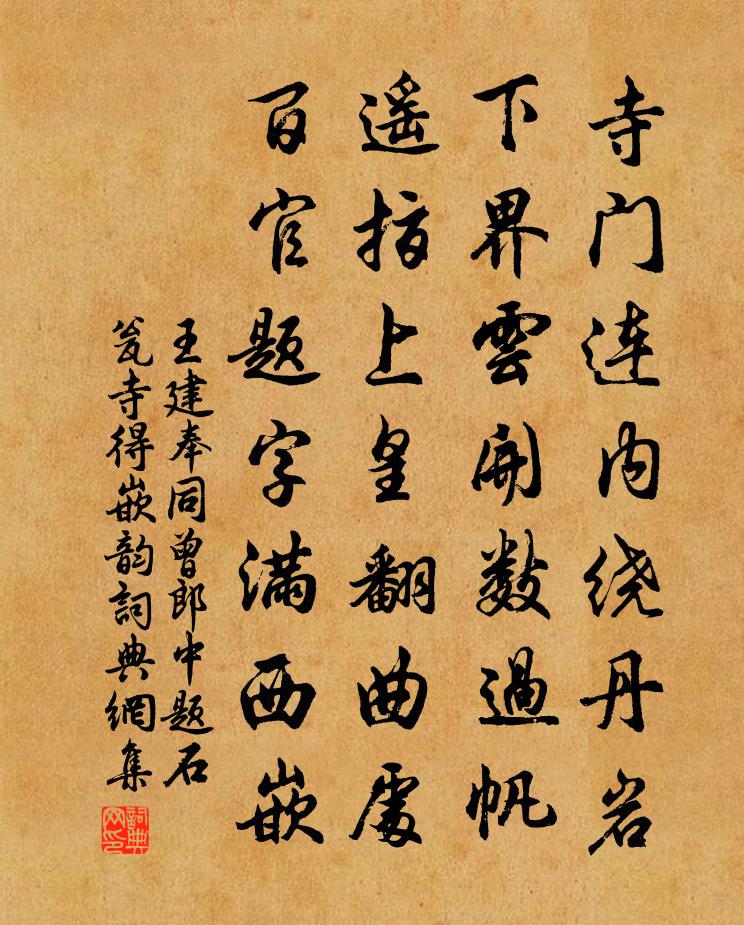 寺门连内绕丹岩
下界雲開数過帆
遥指上皇翻曲處
百官题字满西嵌
王建奉同曾郎中题石
瓮寺得嵌韵詞典網集
詞典网印